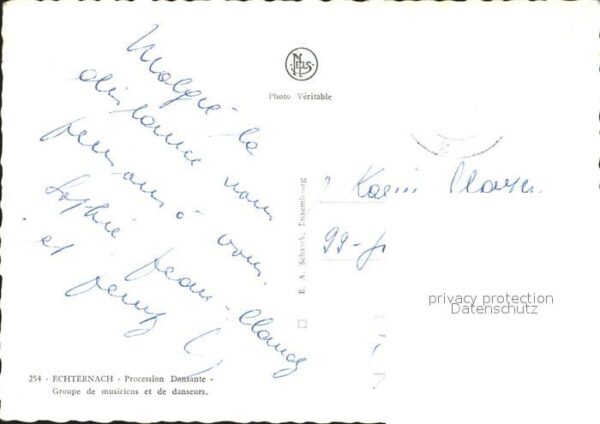 Malgré la
distance nous
pensons à vous.
Sophie Jean-Claude
et Jenny
NELS
Photo Véritable
E. A. Schaack, Luxembourg
Karin
99-
privacy protection
Datenschutz
254 - ECHTERNACH - Procession Dansante -
Groupe de musiciens et de danseurs.